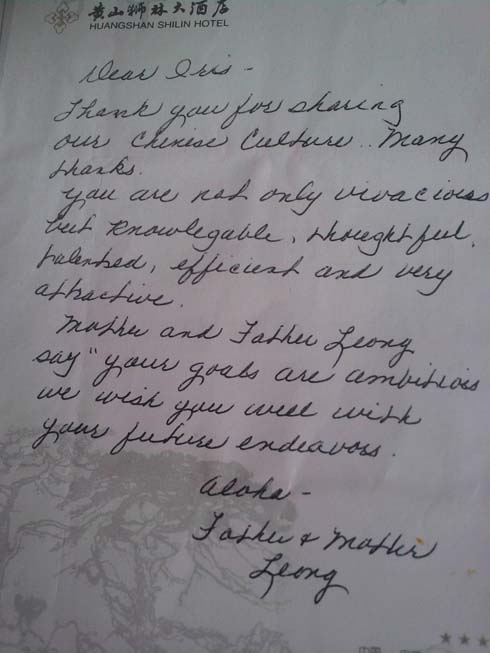 黄山狮林大酒店
HUANGSHAN SHILIN HOTEL
Dear Iris -
Thank you for sharing
our Chinese Culture.. Many
thanks.
You are not only vivacious
but knowlegable, thoughtful,
talented, efficient and very
attractive.
Mother and Father Leong
say "your goals are ambitious
we wish you well with
your future endeavors.
Aloha -
Father & Mother
Leong